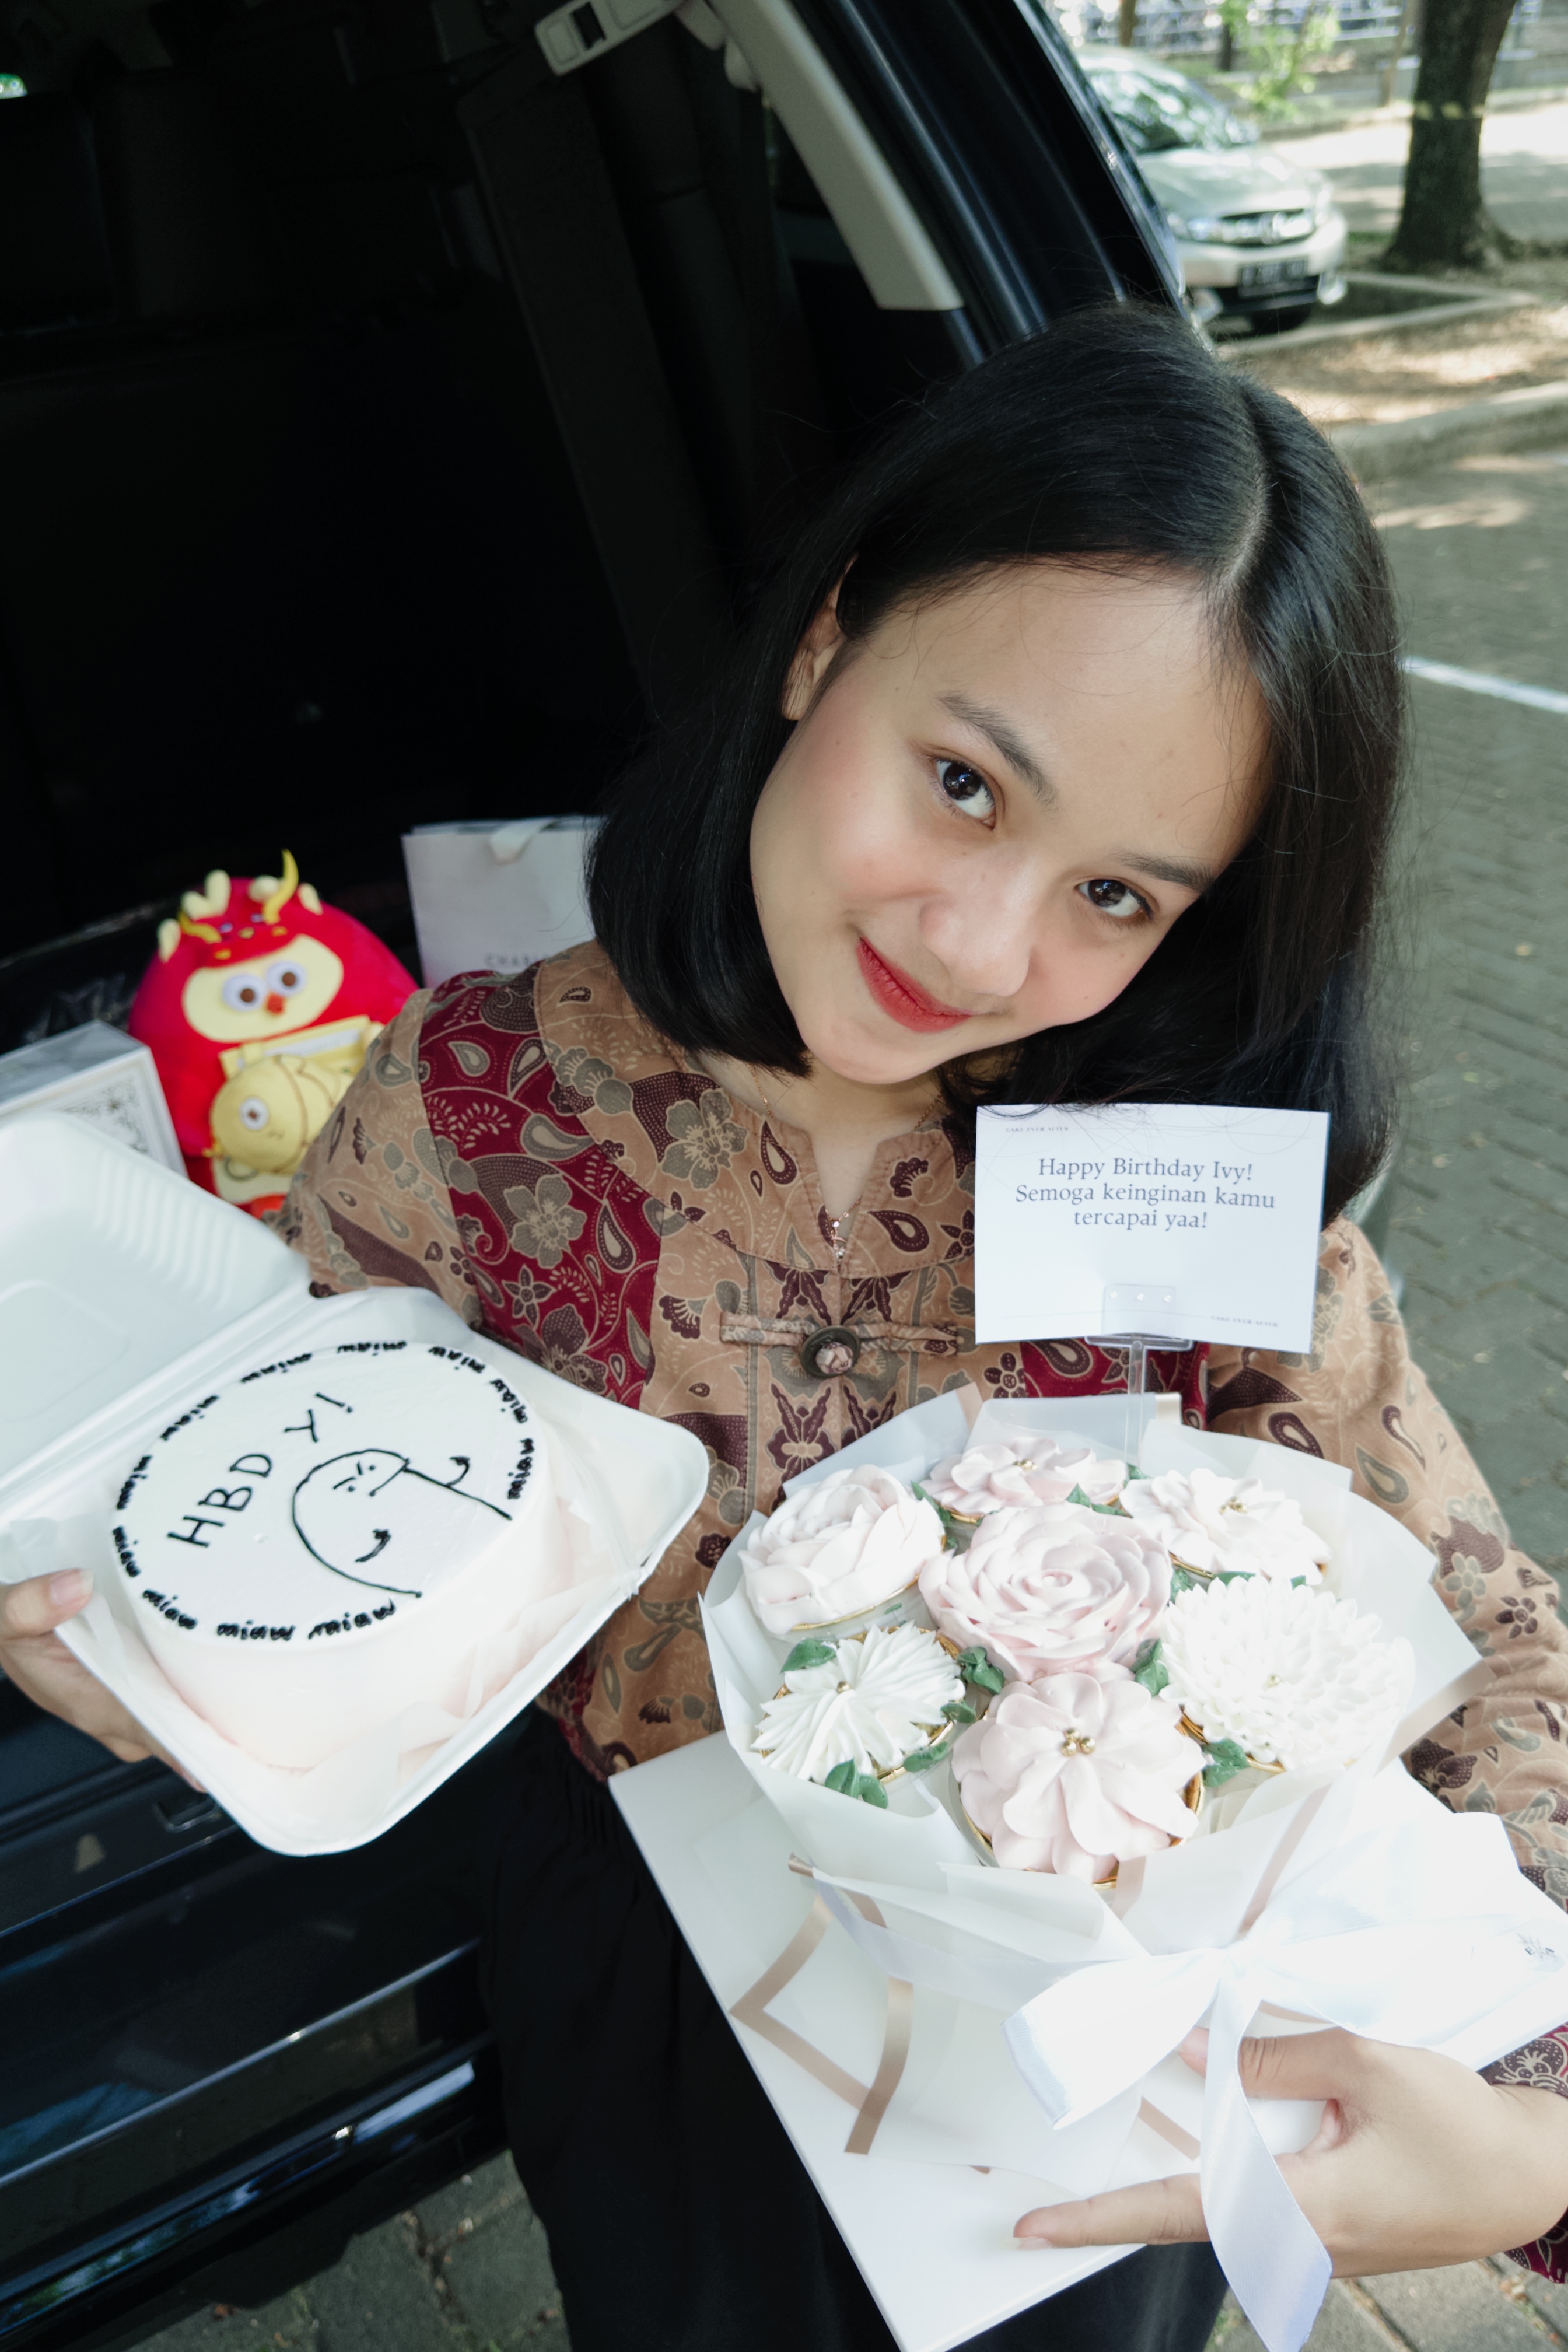 CHARL
CAKE EVER AFTER
Happy Birthday Ivy!
Semoga keinginan kamu
tercapai yaa!
CAKE EVER AFTER
HBD Yi
miaw miaw miaw miaw miaw miaw miaw miaw miaw miaw miaw miaw miaw miaw